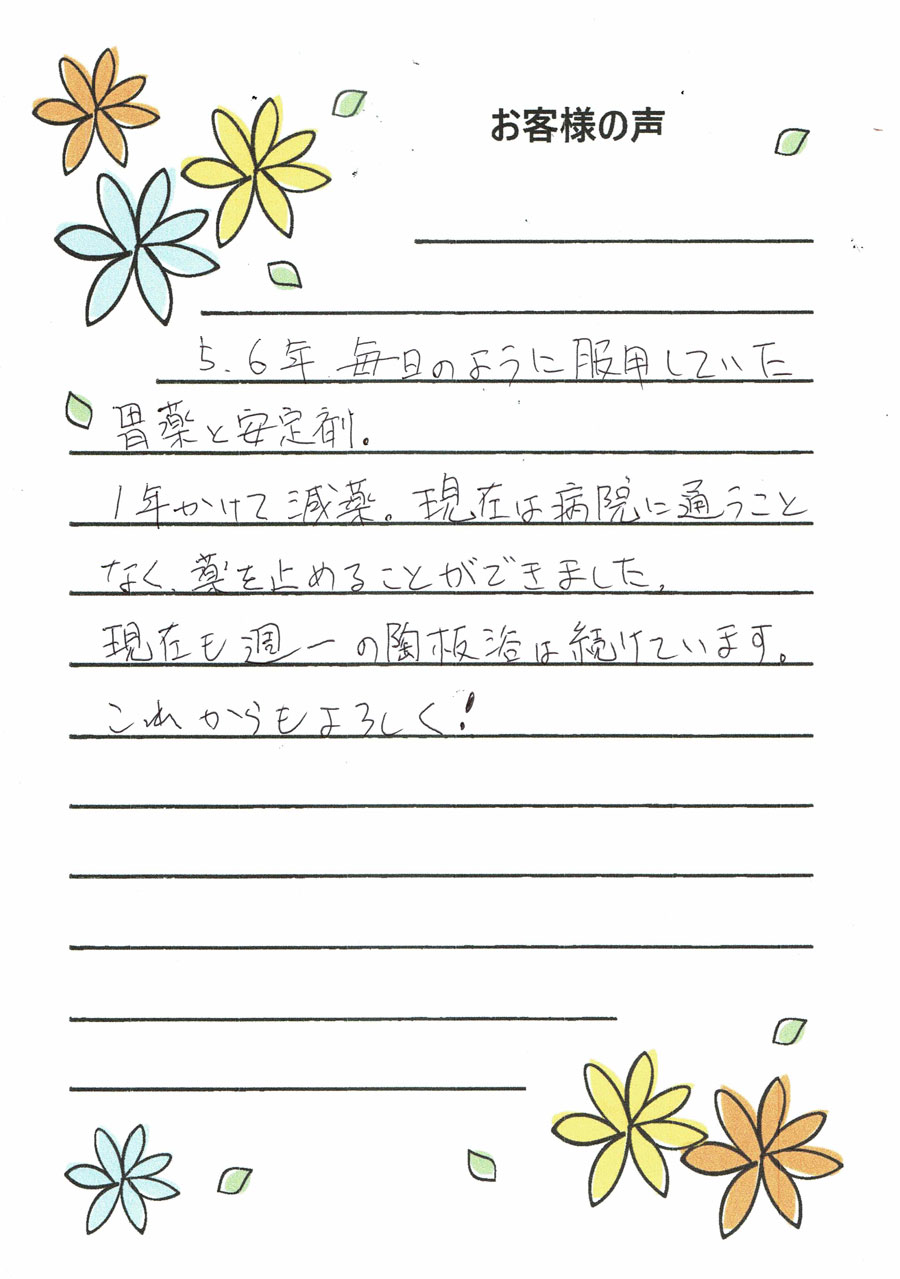 お客様の声
5.6年 毎日のように服用していた
胃薬と安定剤。
1年かけて減薬。現在は病院に通うこと
なく、薬を止めることができました。
現在も週一の陶板浴は続けています。
これからもよろしく!